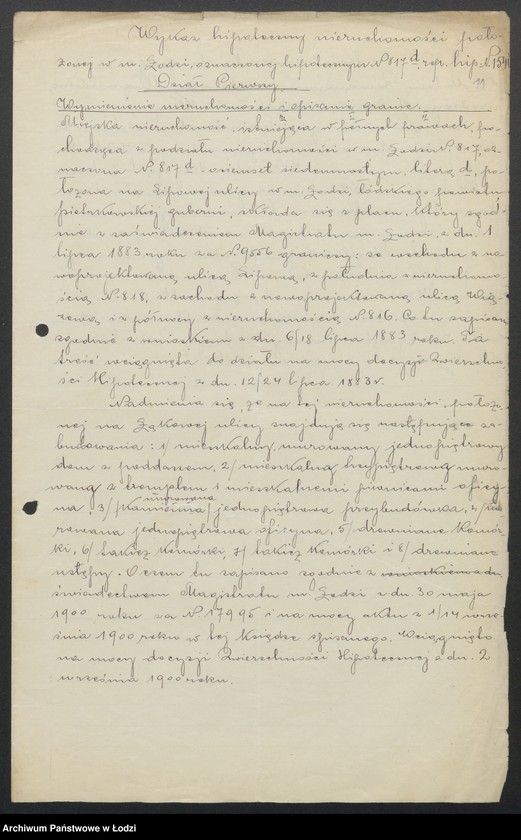 Wykaz hipoteczny nieruchomości poło-
żonej w m. Łodzi, oznaczonej hipotecznym N. 817 d rep. hip.
11
Dział Pierwszy
Wymienienie nieruchomości i opisanie granic.
Miejska nieruchomość, istniejąca w prawach, po-
chodząca z podziału nieruchomości w m. Łodzi N. 817, oz-
naczona N. 817 d - osiemset siedemnastym, literą d, po-
łożona na Lipowej ulicy w m. Łodzi, łódzkiego powiatu
piotrkowskiej guberni, składa się z placu, który zgod-
nie z zaświadczeniem Magistratu m. Łodzi, z dn. 1
lipca 1883 roku za N. 9556 graniczy: ze wschodu z no-
woprojektowaną ulicą Lipową, z południa z nieruchomo-
ścią N. 818, z zachodu z nowoprojektowaną ulicą
i z północy z nieruchomością N. 816. Co tu zapisano
zgodnie z wnioskiem z dn. 6/18 lipca 1883 roku. Ta
treść wciągnięta do działu na mocy decyzji Zwierzchno-
ści Hipotecznej z dn. 12/24 lipca 1883 r.
Nadmienia się, że na tej nieruchomości, położo-
nej na Łąkowej ulicy znajdują się następujące za-
budowania: 1/ mieszkalny murowany jednopiętrowy
dom z poddaszem, 2/ mieszkalna murow-
waną z frontem i mieszkalnemi piwnicami oficy-
na, 3/ murowana jednopiętrowa przybudówka, 4/ mu-
rowana jednopiętrowa oficyna, 5/ drewniane komór-
ki, 6/ takież komórki 7/ takież komórki i 8/ drewniane
ustępy. O czem tu zapisano zgodnie z wnioskiem z dn.
świadectwem Magistratu m. Łodzi z dn. 30 maja
1900 roku za N. 17995 i na mocy aktu z 1/14 wrze-
śnia 1900 roku w tej Księdze spisanego. Wciągnięto
na mocy decyzji Zwierzchności Hipotecznej z dn. 2
września 1900 roku.
Archiwum Państwowe w Łodzi